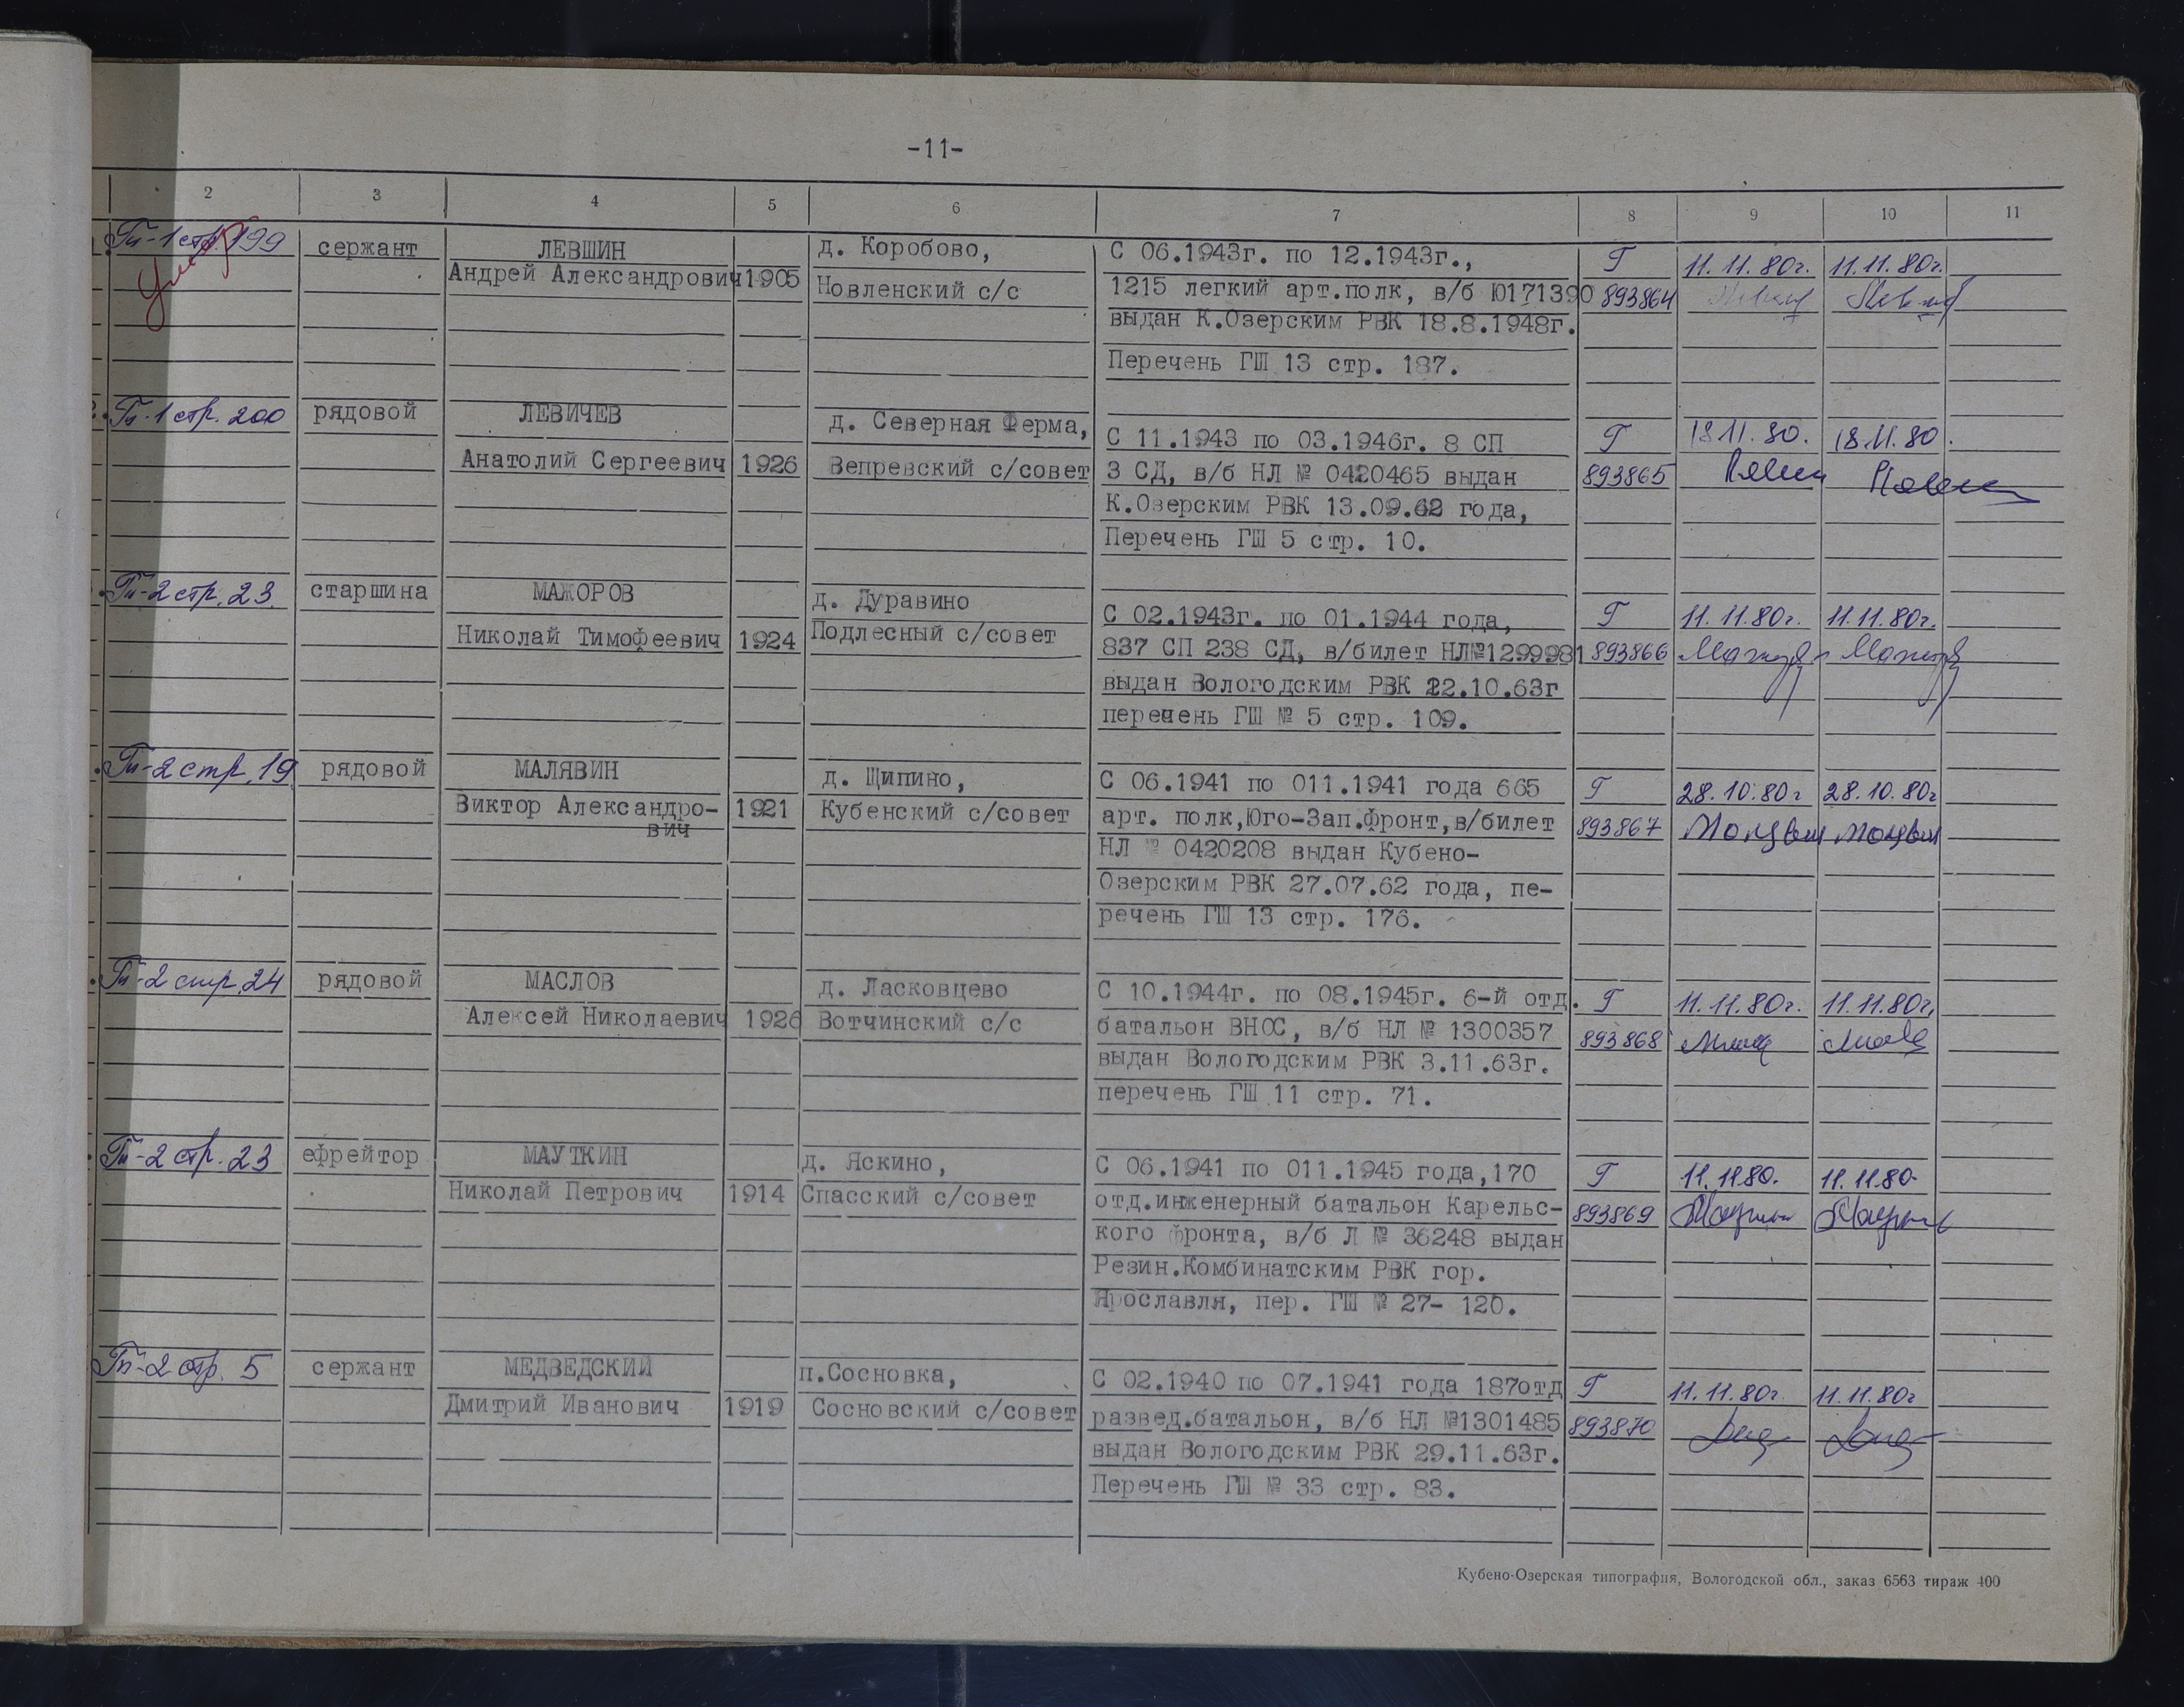 -11-
2 3 4 5 6 7 8 9 10 11
Гп-1 стр. 199 сержант ЛЕВШИН д. Коробово, С 06.1943г. по 12.1943г., Г 11.11.80г. 11.11.80г.
Умер
Андрей Александрович 1905 Новленский с/с 1215 легкий арт.полк, в/б Ю171390 893864
выдан К.Озерским РВК 18.8.1948г.
Перечень ГШ 13 стр. 187.
Гп-1 стр. 200 рядовой ЛЕВИЧЕВ д. Северная Ферма, С 11.1943 по 03.1946г. 8 СП Г 18.11.80. 18.11.80.
Анатолий Сергеевич 1926 Вепревский с/совет 3 СД, в/б НЛ № 0420465 выдан 893865
К.Озерским РВК 13.09.62 года,
Перечень ГШ 5 стр. 10.
Гп-2 стр. 23. старшина МАЖОРОВ д. Дуравино С 02.1943г. по 01.1944 года, Г 11.11.80г. 11.11.80г.
Николай Тимофеевич 1924 Подлесный с/совет 837 СП 238 СД, в/билет НЛ№1299981 893866
выдан Вологодским РВК 22.10.63г
перечень ГШ № 5 стр. 109.
Гп-2 стр. 19 рядовой МАЛЯВИН д. Щипино, С 06.1941 по 011.1941 года 665 Г 28.10.80г 28.10.80г
Виктор Александро- 1921 Кубенский с/совет арт. полк,Юго-Зап.фронт,в/билет 893867
вич
НЛ № 0420208 выдан Кубено-
Озерским РВК 27.07.62 года, пе-
речень ГШ 13 стр. 176.
Гп-2 стр. 24 рядовой МАСЛОВ д. Ласковцево С 10.1944г. по 08.1945г. 6-й отд. Г 11.11.80г. 11.11.80г.
Алексей Николаевич 1926 Вотчинский с/с батальон ВНОС, в/б НЛ № 1300357 893868
выдан Вологодским РВК 3.11.63г.
перечень ГШ 11 стр. 71.
Гп-2 стр. 23 ефрейтор МАУТКИН д. Яскино, С 06.1941 по 011.1945 года,170 Г 11.11.80. 11.11.80.
Николай Петрович 1914 Спасский с/совет отд.инженерный батальон Карельс- 893869
кого фронта, в/б Л № 36248 выдан
Резин.Комбинатским РВК гор.
Ярославля, пер. ГШ № 27- 120.
Гп-2 стр. 5 сержант МЕДВЕДСКИЙ п.Сосновка, С 02.1940 по 07.1941 года 187отд Г 11.11.80г. 11.11.80г
Дмитрий Иванович 1919 Сосновский с/совет развед.батальон, в/б НЛ №1301485 893870
выдан Вологодским РВК 29.11.63г.
Перечень ГШ № 33 стр. 83.
Кубено-Озерская типография, Вологодской обл., заказ 6563 тираж 400